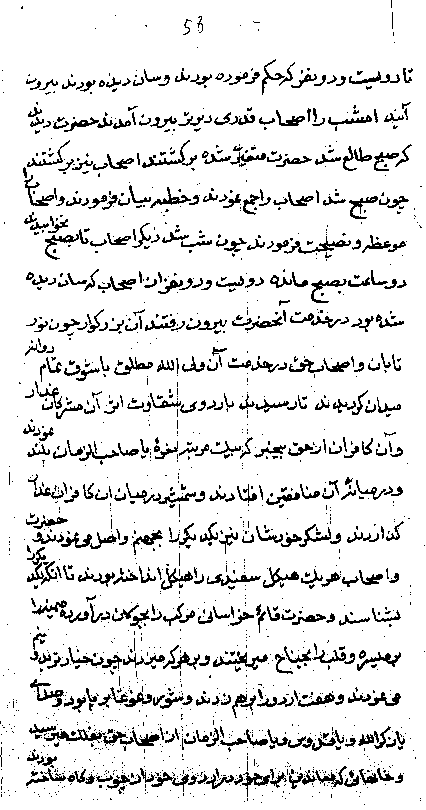 53
تا دویست و دو نفر که حکم فرموده بودند و سان دیده بودند بیرون
آیند امشب را اصحاب قدری دیرتر بیرون آمدند حضرت دیدند
که صبح طالع شد حضرت متغیر شده برگشتند اصحاب نیز برگشتند
چون صبح شد اصحاب را جمع نمودند و خطبه بیان فرمودند و اصحاب را
موعظه و نصیحت فرمودند چون شب شد دیگر اصحاب تا صبح نخوابیدند
دو ساعت بصبح مانده دویست و دو نفر از اصحاب که سان دیده
شده بود در خدمت آنحضرت بیرون رفتند آن بزرگوار چون نور
تابان و اصحاب حق در خدمت آن ولی الله مطلق با شوق تمام روانه
میدان گردیدند تا رسیدند باردوی شقاوت اثر آن مشرکان غدار
و آن کافران از حق بیخبر که یک مرتبه نعره یا صاحب الزمان بلند نمودند
و در میان آن منافقین افتادند و شمشیر در میان آن کافران غدار
گذاردند و لشکر خودشان نیز یکدیگر را بجهنم واصل می نمودند و حضرت
و اصحاب هر یک هیکل سفیدی را هیکل انداخته بودند تا آنکه یکدیگر را
بشناسند و حضرت قائم خراسانی مرکب را بجولان در آورده میمنه را
بر میسره و قلب را بجناح میریختند و بر هر که میزدند چون خیار تر بدو نیم
می نمودند و هفت اردو را بر هم زدند و شورش و غوغا بر پا بود و صدای
یا ذکر الله و یا قدوس و یا صاحب الزمان از اصحاب حق بفلک میرسید
و خانهائی که مازندرانی برای خود در اردوی خود از چوب و گاه ساخته بودند